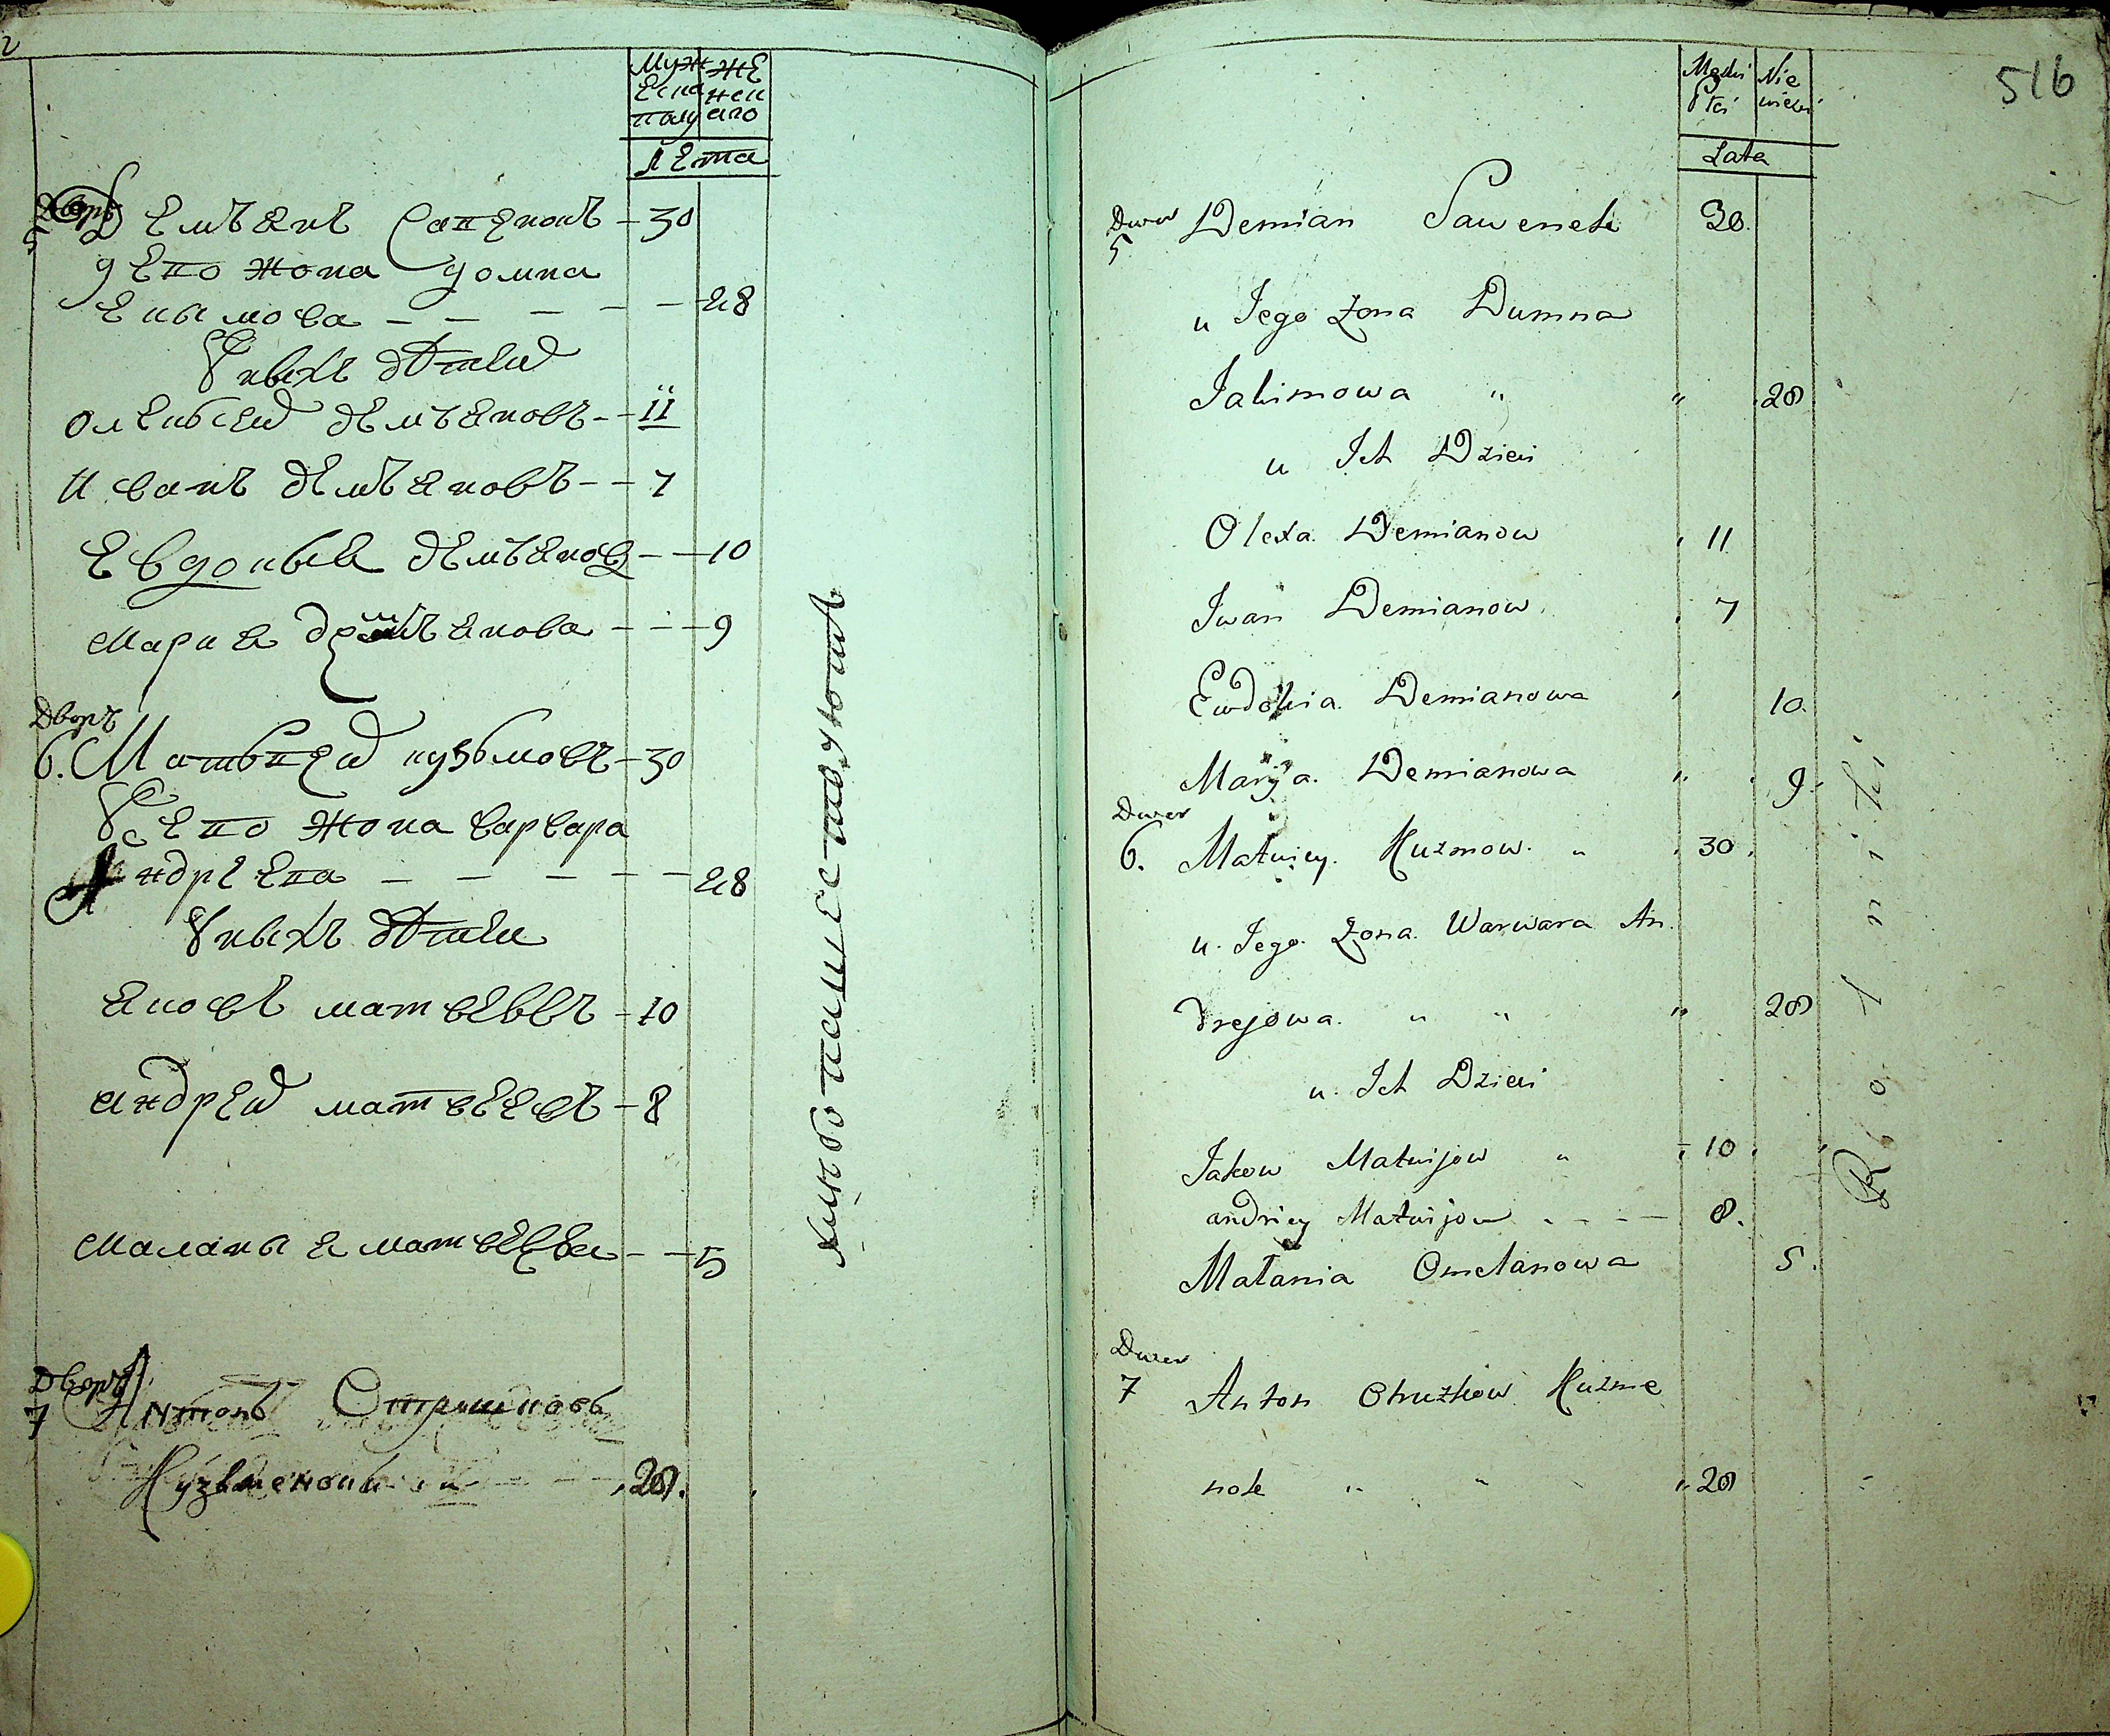 2
Муж Же
еска нск
полу аго
лета
Дворъ
5 Демъянъ Савенокъ 30
у его жона домна
екимова 28
У ныхъ дѣтей
Олексей демъяновъ 11
Иванъ демъяновъ 7
Евдокыя демъянов 10
Мария демъянова 9
Дворъ
6. Матьвей кузьмовъ 30
У его жона варвара
Андреева 28
У ныхъ дѣти
Яковъ матвеевъ 10
андрей матвеевъ 8
Маланыя матвеева 5
Дворъ
7 Антонъ Струшковъ
Кузьменокъ 28.
хлѣбопашествуютъ
516
Męzki Nie
Płci wiezci
Lata
Dwor
5 Demian Sawenek 30.
u Jego Zona Dumna
Jakimowa " " 28
u Ich Dzieci
Olexa Demianow 11
Iwan Demianow 7
Ewdokia Demianowa 10.
Maryja Demianowa 9.
Dwor
6. Matwiey Kuzmow. 30.
u Jego Zona Warwara An.
drejowa. " " " 28
u Ich Dzieci
Jakow Matwijow " 10.
andriey Matwijow 8.
Matania Omelanowa 5.
Dwor
7 Anton Struzkow Kuzme
nok " " " 28
Rolniki